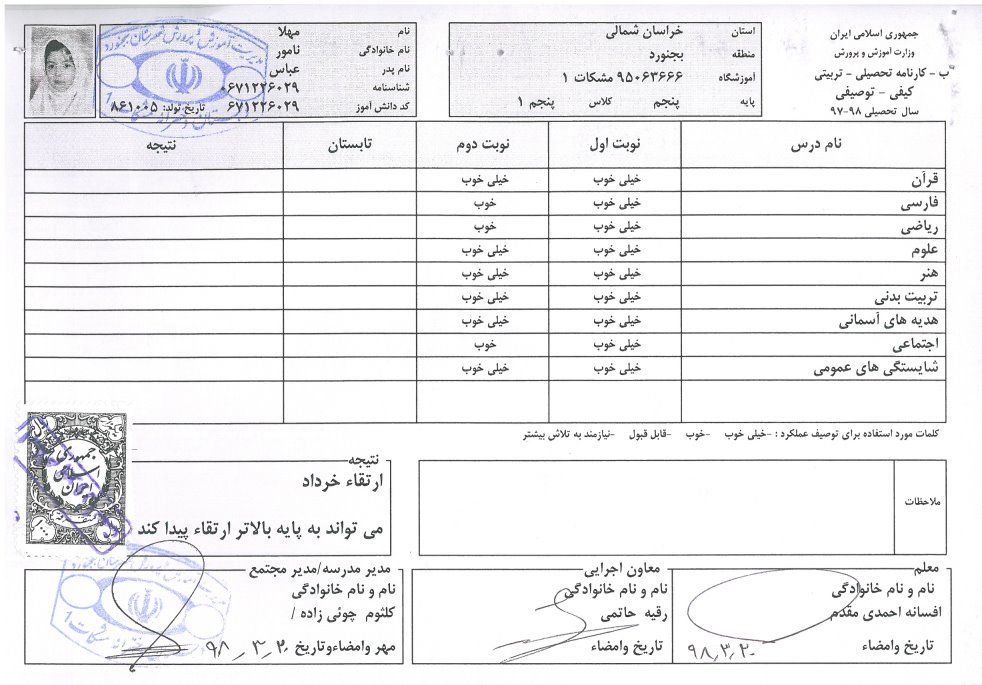 جمهوری اسلامی ایران
وزارت آموزش و پرورش
ب - کارنامه تحصیلی - تربیتی
کیفی - توصیفی
سال تحصیلی ۹۸-۹۷
استان خراسان شمالی
منطقه بجنورد
آموزشگاه ۹۵۰۶۳۶۶۶ مشکات ۱
پایه پنجم کلاس پنجم ۱
نام مهلا
نام خانوادگی نامور
نام پدر عباس
شناسنامه ۰۶۷۱۲۲۶۰۲۹
کد دانش آموز ۶۷۱۲۲۶۰۲۹ تاریخ تولد: ۸۶۱۰۰۵
نام درس نوبت اول نوبت دوم تابستان نتیجه
قرآن خیلی خوب خیلی خوب
فارسی خیلی خوب خوب
ریاضی خیلی خوب خوب
علوم خیلی خوب خیلی خوب
هنر خیلی خوب خیلی خوب
تربیت بدنی خیلی خوب خیلی خوب
هدیه های آسمانی خیلی خوب خیلی خوب
اجتماعی خیلی خوب خوب
شایستگی های عمومی خیلی خوب خیلی خوب
کلمات مورد استفاده برای توصیف عملکرد : -خیلی خوب -خوب -قابل قبول -نیازمند به تلاش بیشتر
ملاحظات
نتیجه
ارتقاء خرداد
می تواند به پایه بالاتر ارتقاء پیدا کند
جمهوری
اسلامی
ایران
معلم
نام و نام خانوادگی
افسانه احمدی مقدم
تاریخ وامضاء ۹۸٫۳٫۲۰
معاون اجرایی
نام و نام خانوادگی
رقیه حاتمی
تاریخ وامضاء
مدیر مدرسه/مدیر مجتمع
نام و نام خانوادگی
کلثوم چوئی زاده /
مهر وامضاءوتاریخ ۹۸٫۳٫۲۰